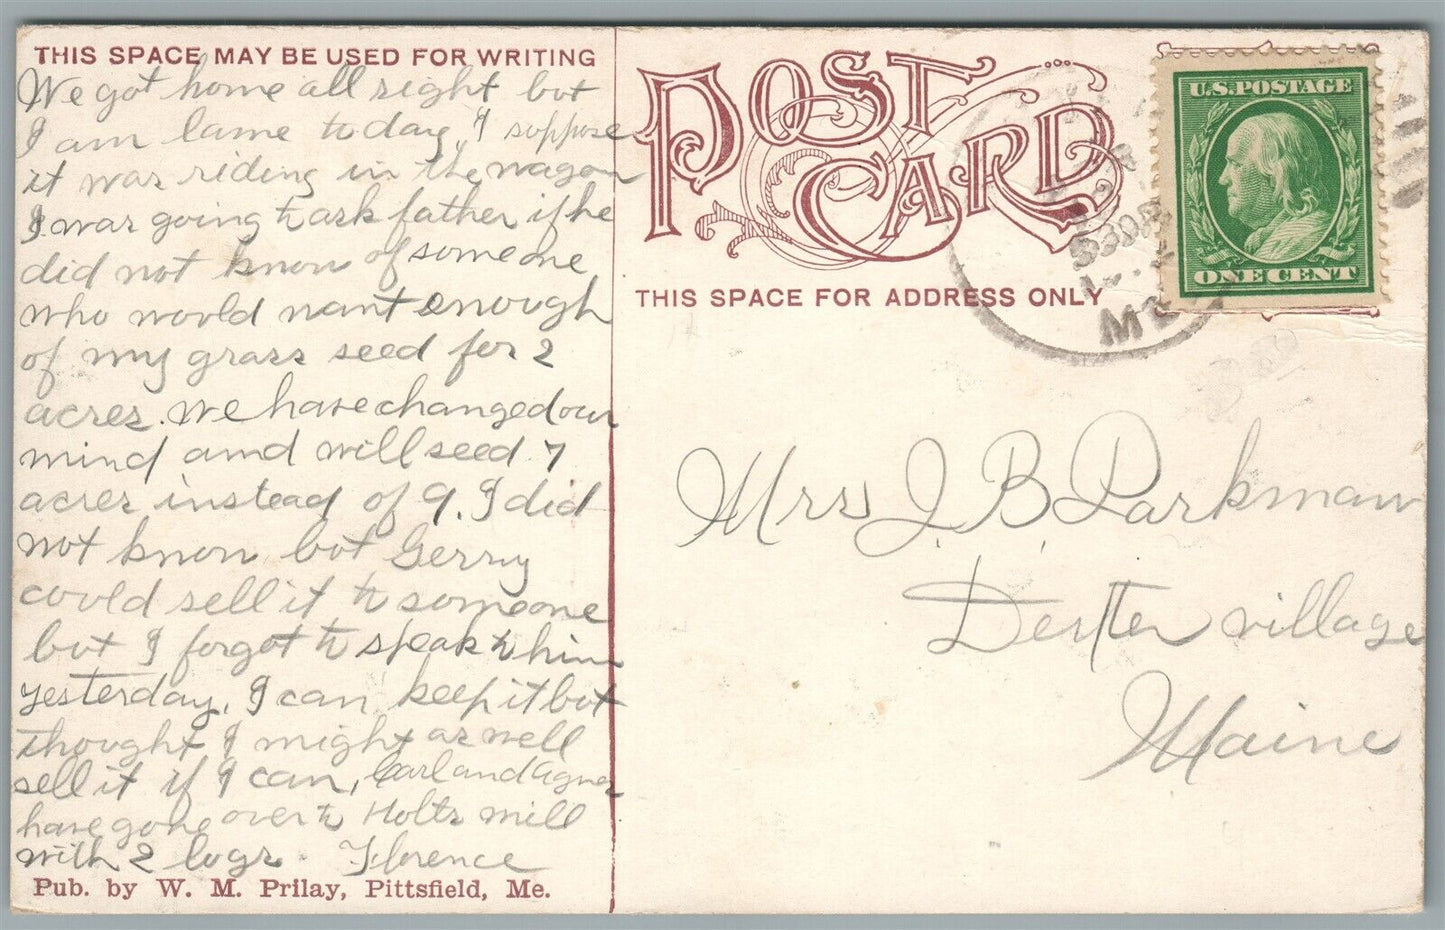 THIS SPACE MAY BE USED FOR WRITING
We got home all right but
I am lame today, I suppose
it was riding in the wagon
I was going to ask father if he
did not know of someone
who would want enough
of my grass seed for 2
acres. We have changed our
mind and will seed 7
acres instead of 9. I did
not know but Gerry
could sell it to someone
but I forgot to speak to him
yesterday. I can keep it but
thought I might as well
sell it if I can, Carl and Agnes
have gone over to Holts mill
with 2 logs. Florence
Pub. by W. M. Prilay, Pittsfield, Me.
POST CARD
THIS SPACE FOR ADDRESS ONLY
U.S. POSTAGE
ONE CENT
530P
ME
Mrs J. B. Parkman
Dexter village
Maine